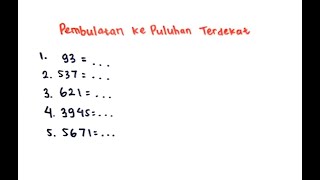 Pembulatan ke Puluhan Terdekat
1. 93 = ...
2. 537 = ...
3. 621 = ...
4. 3945 = ...
5. 5671 = ...